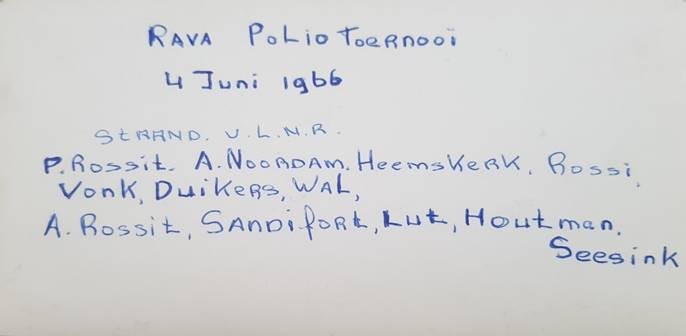 RAVA POLIO TOERNOOI
4 Juni 1966
STRAND. V.L.N.R.
P. Rossit. A. NOORDAM. Heemskerk. Rossi,
Vonk, Duikers, WAL,
A. Rossit, SANDifort, Lut, Houtman.
Seesink